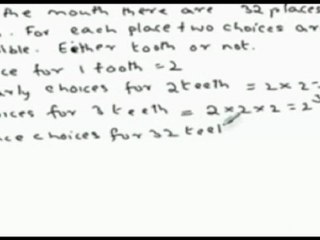 the mouth there are 32 places
. For each place two choices are
ible. Either tooth or not.
ce for 1 tooth = 2
arly choices for 2 teeth = 2×2=
oices for 3 teeth = 2×2×2 = 2³
nce choices for 32 teet